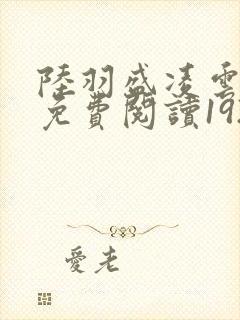 陸羽盛凌雲
免費閱讀19
愛老